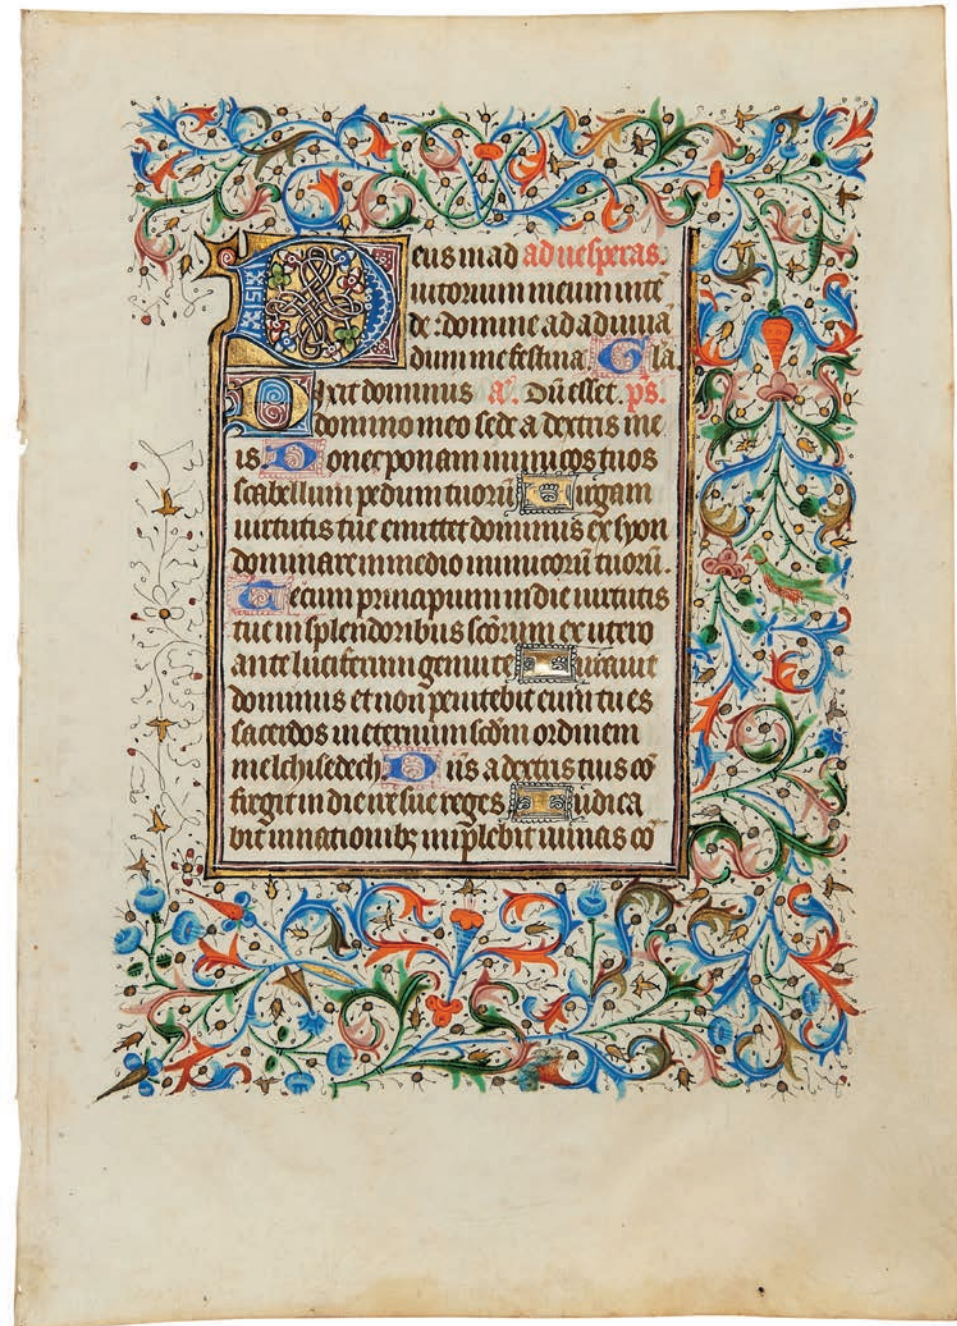 Deus in ad ad vesperas.
iutorium meum inte᷑
de: domine ad adiuuā
dum me festina Glā
Dixit dominus aᷓ. Dū esset. pˢ.
domino meo sede a dextris me
is Donec ponam inimicos tuos
scabellum pedum tuorū Uirgam
uirtutis tue emittet dominus ex syon
dominare in medio inimicorū tuorū.
Tecum principium in die uirtutis
tue in splendoribus scōrum ex utero
ante luciferum genui te Iurauit
dominus et non penitebit eum tu es
sacerdos in eternum scdm̄ ordinem
melchisedech Dn̄s a dextris tuis cō
fregit in die ire sue reges Iudica
bit in nationibꝫ implebit ruinas cō